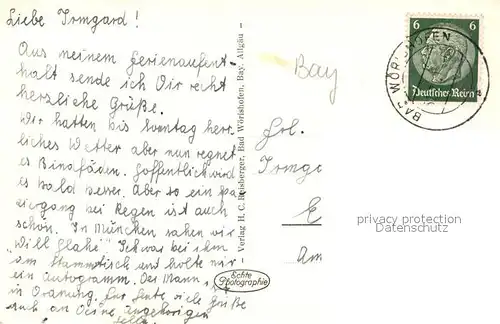 Liebe Irmgard!
Aus meinem Ferienaufent-
halt sende ich Dir recht
herzliche Grüße.
Wir hatten bis Sonntag herr-
liches Wetter aber nun regnet
es Bindfäden. Hoffentlich wird
es bald besser. Aber so ein Spa-
ziergang bei Regen ist auch
schön. In München sahen wir
"Will Glahe". Ich war bei ihm
am Stammtisch und holte mir
ein Autogramm. Der Mann ist
in Ordnung. Für heute viele Grüße
auch an Deine Angehörigen
Verlag H. C. Reisberger, Bad Wörishofen, Bay. Allgäu -
Echte
Photographie
6 6
Deutsches Reich
BAD WÖRISHOFEN
Bay
Frl.
Irmga
E
Am
privacy protection